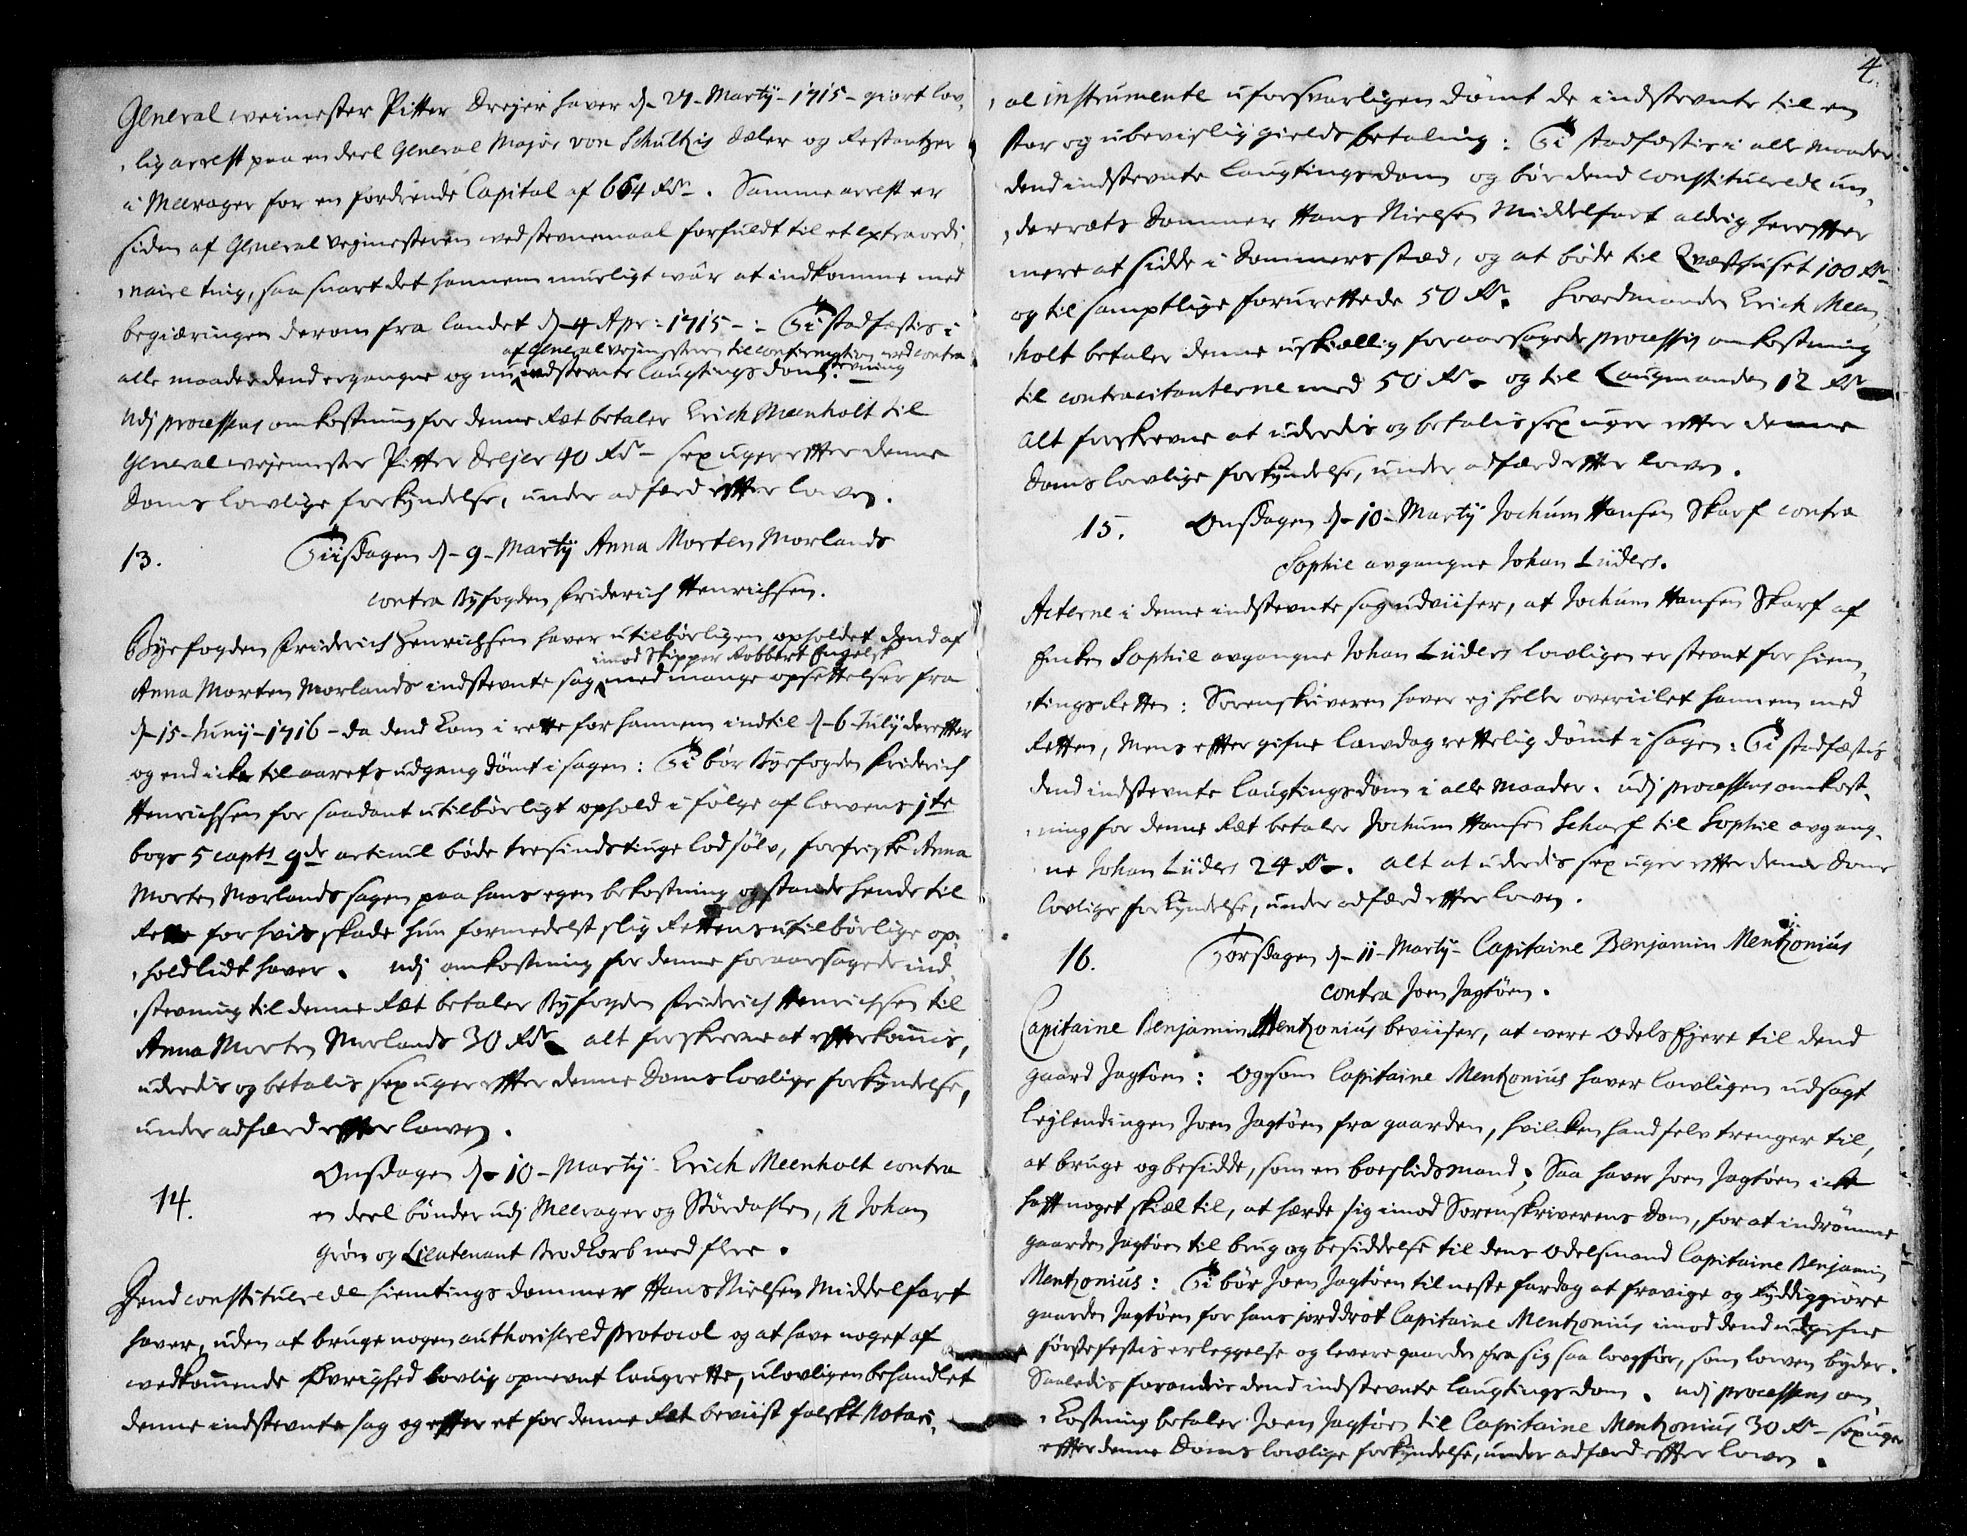 General weimester Pitter Dreyer haver d. 27. Martij 1715 giort lov,
,lig arrest paa en deel General Major von Schultzis daler og Restantzer
i Meerager for en fordrende Capital af 664 Rdr. Samme arrest er
siden af General Vejmesteren ved stevnemaal forfuldt til et extraordi,
,naire ting, saa snart det hannem mueligt war at indkomme med
begiæringen derom fra landet d. 4 Apr: 1715 : Thi stadfæstis i
af General vejmesteren til confirmation ved contra
stevning
alle maader dend ergangne og nu indstevnte Laugtings dom.
Udj processens omkostning for denne Ræt betaler Erich Meenholt til
General wejemester Pitter Drejer 40 Rdr sex uger efter denne
doms lovlige forkyndelse, under adfærd efter lowen.
13. Tiisdagen d. 9. Martij Anna Morten Morlands
contra Byfogden Friderich Henrichsen.
Byefogden Friderich Henrichsen haver utilbørligen opholdet dend af
imod Skipper Robbert Engelst
Anna Morten Morlands indstevnte sag med mange opsettelser fra
d. 15. Junij 1716 da dend kom i rette for hannem indtil d. 6 Julij derefter
og end icke til aarets udgang dømt i sagen: Thi bør Byefogden Friderich
Henrichsen for saadant utilbørligt ophold i følge af lowens 1te
bogs 5 capts 9de articul bøde tresindstiuge lod sølv, forfriske Anna
Morten Morlands sagen paa hans egen bekostning og stande hende til
Rette for hvis skade hun formedelst slig Rettens utilbørlige op,
,hold lidt haver. Udj omkostning for denne foraarsagede ind,
,stevning til denne Ræt betaler Byfogden Friderich Henrichsen til
Anna Morten Morlands 30 Rdr alt forskrevne at efterkommis,
uderdis og betalis sex uger efter denne Doms lovlige forkyndelse,
under adfærd efter lowen.
14. Onsdagen d. 10. Martij Erich Meenholt contra
en deel bønder udj Meerager og Stördahlen, H Johan
Grøn og Lieutenant Brodkorb med flere.
Dend constituerede hiemtings dommer Hans Nielsen Middelfart
haver, uden at bruge nogen authorisered protocol og at have noget af
wedkommende Øvrighed lovlig opnevnt laugrette, ulovligen behandlet
denne indstevnte sag og efter et for denne Ræt beviist falskt Notari,
4.
,al instrumente uforsvarligen dømt de indstevnte til en
stor og ubevislig gields betaling: Thi stadfæstis i alle maader
dend indstevnte Laugtingsdom og bør dend constituerede un,
,derrets Dommer Hans Nielsen Middelfart aldrig herefter
mere at sidde i Dommers stæd, og at bøde til Qvæsthuset 100 Rdr
og til samptlige forurettede 50 Rdr. Hovedmanden Erich Meen,
,holt betaler denne uskiællig foraarsagede processis omkostning
til contracitanterne med 50 Rdr og til Laugmanden 12 Rdr
alt forskrevne at uderdis og betalis sex uger efter denne
Doms lovlige forkyndelse, under adfærd efter lowen.
15. Onsdagen d. 10. Martij Jochum Hansen Skarf contra
Sophie avgangne Johan Lüders.
Acterne i denne indstevnte sag udviiser, at Jochum Hansen Skarf af
Encken Sophie avgangne Johan Lüders lovligen er stevnt for hiem,
,tings Retten: Sorenskriveren haver ej heller overiilet hannem med
Retten, Mens efter gifne lawdag rettelig dømt i sagen: Thi stadfæstis
dend indstevnte Laugtingsdom i alle maader. udj processens omkost,
,ning for denne Ræt betaler Jochum Hansen Scharf til Sophie avgang,
,ne Johan Lüders 24 Rdr. alt at uderdis sex uger efter denne doms
lovlige forkyndelse, under adfærd efter lowen.
16. Torsdagen d. 11. Martij Capitaine Benjamin Mentzonius
contra Joen Jagtøen.
Capitaine Benjamin Mentzonius beviiser, at were Odels Ejere til dend
gaard Jagtøen: Og som Capitaine Mentzonius haver lowligen udsagt
leylendingen Joen Jagtøen fra gaarden, hvilcken hand selv trenger til,
at bruge og besidde, som en boeslidsmand; Saa haver Joen Jagtøen icke
haft noget skiæl til, at hærde sig imod Sorenskriverens dom, for at indrømme
gaarden Jagtøen til brug og besiddelse til dens Odelsmand Capitaine Benjamin
Mentzonius: Thi bør Joen Jagtøen til neste fardag at fravige og Ryddiggiøre
gaarden Jagtøen for hans jorddrot Capitaine Mentzonius imod dend udgifne
førstefestis erleggelse og levere gaarden fra sig saa lovgfør, som lowen byder.
Saaledis forandris dend indstevnte Laugtings dom. udj processens om,
,kostning betaler Joen Jagtøen til Capitaine Mentzonius 30 Rdr sex uger
efter denne Doms lovlige forkyndelse, under adfærd efter lowen.